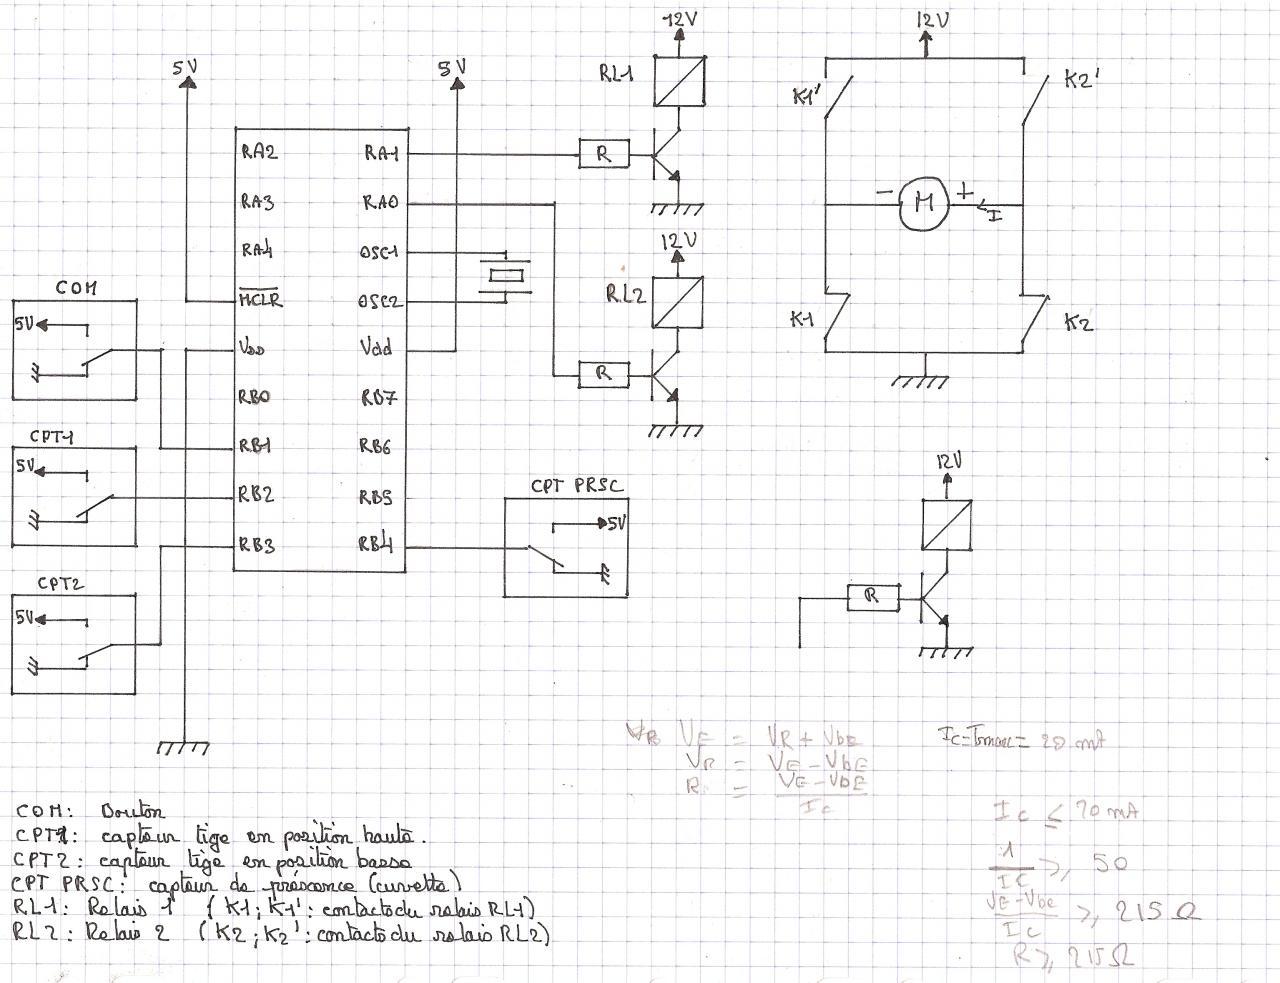 12V
12V
5V
5V
RL1
K1'
K2'
RA2
RA1
R
RA3
RA0
- M +
I
RA4
OSC1
12V
COM
MCLR
OSC2
RL2
5V
K1
K2
VDD
Vdd
R
RB0
RB7
CPT1
RB1
RB6
5V
12V
RB2
RB5
CPT PRSC
5V
RB3
RB4
CPT2
R
5V
VE = VR + VbE
VR = VE - VbE
R = VE - VbE
IC
IC=Imax= 20 mA
IC ≤ 20 mA
1
IC ≥ 50
VE - Vbe
IC ≥ 215 Ω
R ≥ 215Ω
COM: Bouton
CPT1: capteur tige en position haute.
CPT2: capteur tige en position basse
CPT PRSC: capteur de préscence (cuvette)
RL1: Relais 1 (K1; K1': contacts du relais RL1)
RL2: Relais 2 (K2; K2': contacts du relais RL2)